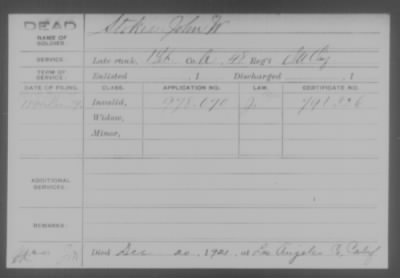 DEAD
NAME OF SOLDIER: John W
SERVICE: Late rank, Co. A, 48 Reg't
TERM OF SERVICE: Enlisted , 1 Discharged , 1
DATE OF FILING. CLASS. APPLICATION NO. LAW. CERTIFICATE NO.
Invalid, 978.070
Widow,
Minor,
ADDITIONAL SERVICES:
REMARKS:
Died Dec 20, 1921, at Los Angeles Co, Calif